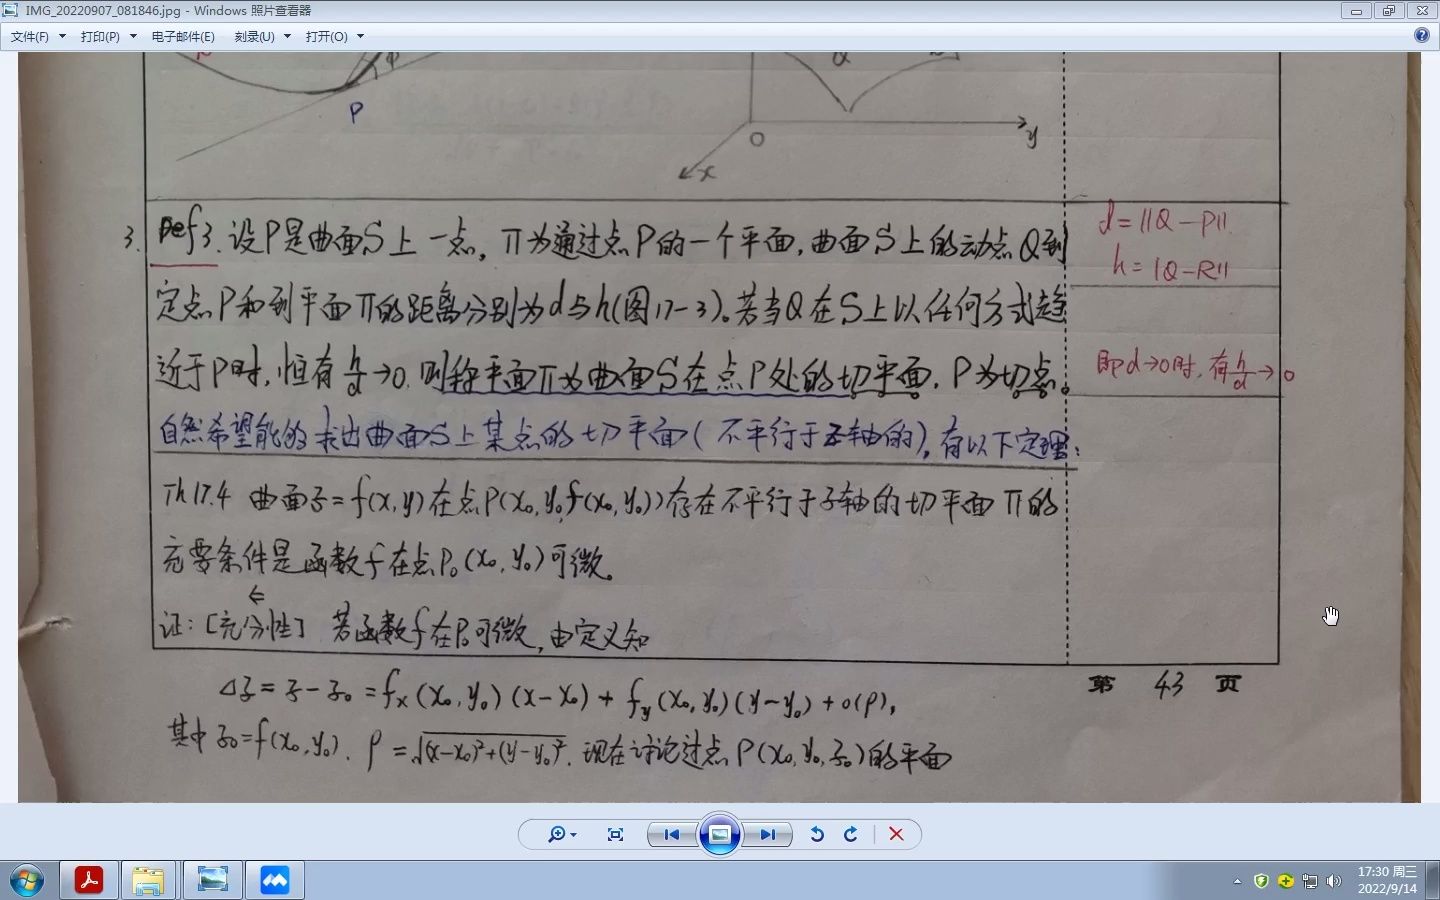 IMG_20220907_081846.jpg - Windows 照片查看器
文件(F) 打印(P) 电子邮件(E) 刻录(U) 打开(O)
P
Q
O
y
x
3. Def3. 设P是曲面S上一点, π为通过点P的一个平面, 曲面S上的动点Q到
定点P和到平面π的距离分别为d与h(图17-3)。若当Q在S上以任何方式趋
近于P时, 恒有h/d→0, 则称平面π为曲面S在点P处的切平面, P为切点。
自然希望能够求出曲面S上某点的切平面(不平行于z轴的), 有以下定理:
Th17.4 曲面z=f(x,y)在点P(x₀,y₀,f(x₀,y₀))存在不平行于z轴的切平面π的
充要条件是函数f在点P₀(x₀,y₀)可微。
⇐
证: [充分性] 若函数f在P₀可微, 由定义知
Δz = z - z₀ = fx(x₀,y₀)(x-x₀) + fy(x₀,y₀)(y-y₀) + o(ρ),
其中z₀=f(x₀,y₀), ρ=√(x-x₀)²+(y-y₀)². 现在讨论过点P(x₀,y₀,z₀)的平面
d=||Q-P||.
h=|Q-R||
即d→0时, 有h/d→0
第 43 页
17:30 周三
2022/9/14